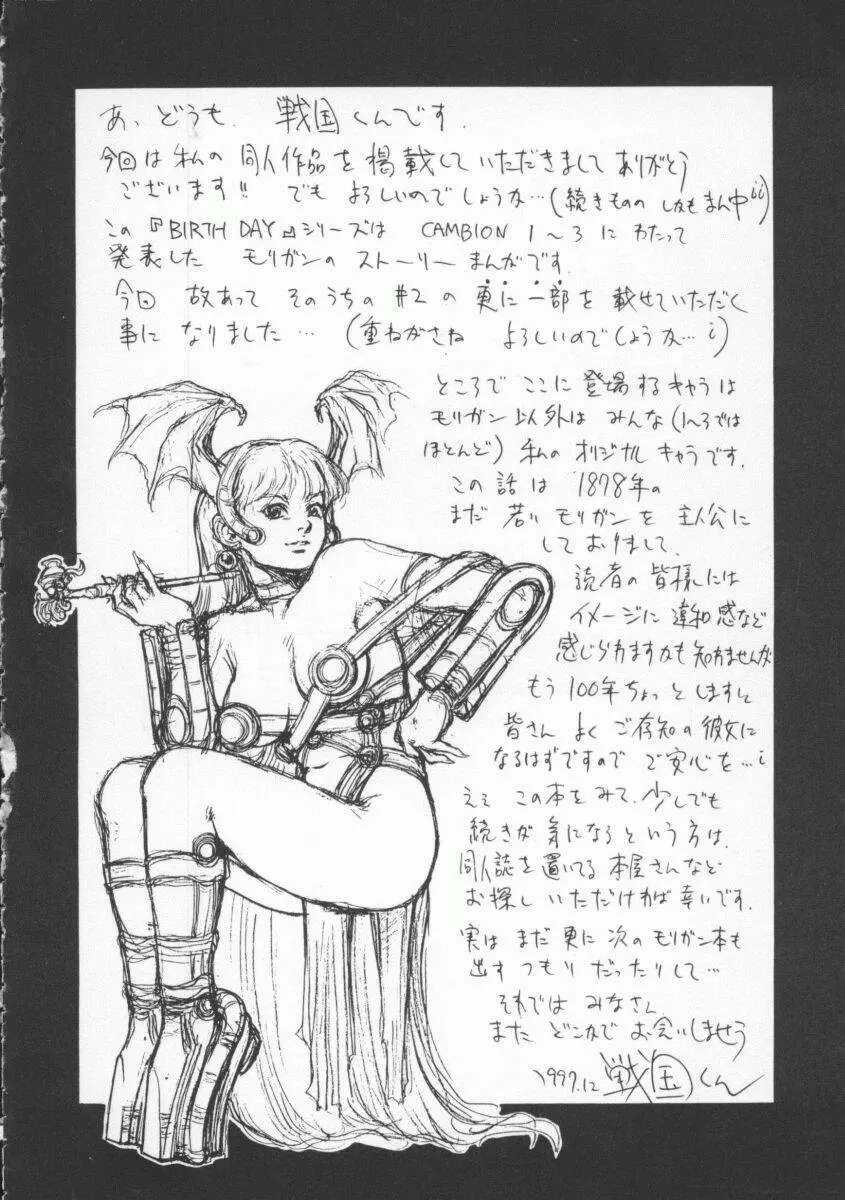 あ、どうも、戦国くんです。
今回は私の同人作品を掲載していただきましてありがとう
ございます!! でもよろしいのでしょうか…(続きもの しかもまん中ii)
この『BIRTH DAY』シリーズは CAMBION 1〜3 にわたって
発表した モリガンの ストーリーまんがです。
今回 故あって そのうちの #2 の 更に一部を 載せていただく
事に なりました… (重ねがさね よろしいのでしょうか…i)
ところで ここに 登場するキャラは
モリガン 以外は みんな(1〜3では
ほとんど) 私の オリジナル キャラです。
この 話は 1878年の
まだ 若い モリガンを 主人公に
しておりまして、
読者の 皆様には
イメージに 違和感など
感じられますかも知れませんが
もう 100年ちょっと しますと
皆さん よく ご存知の 彼女に
なるはずですので ご安心を…i
ええ この本をみて、少しでも
続きが 気になる という方は、
同人誌を置いてる 本屋さんなど
お探し いただければ 幸いです。
実は まだ 更に 次の モリガン本も
出す つもり だったりして…
それでは みなさん
また どこかで お会いしましょう
1997.12 戦国くん